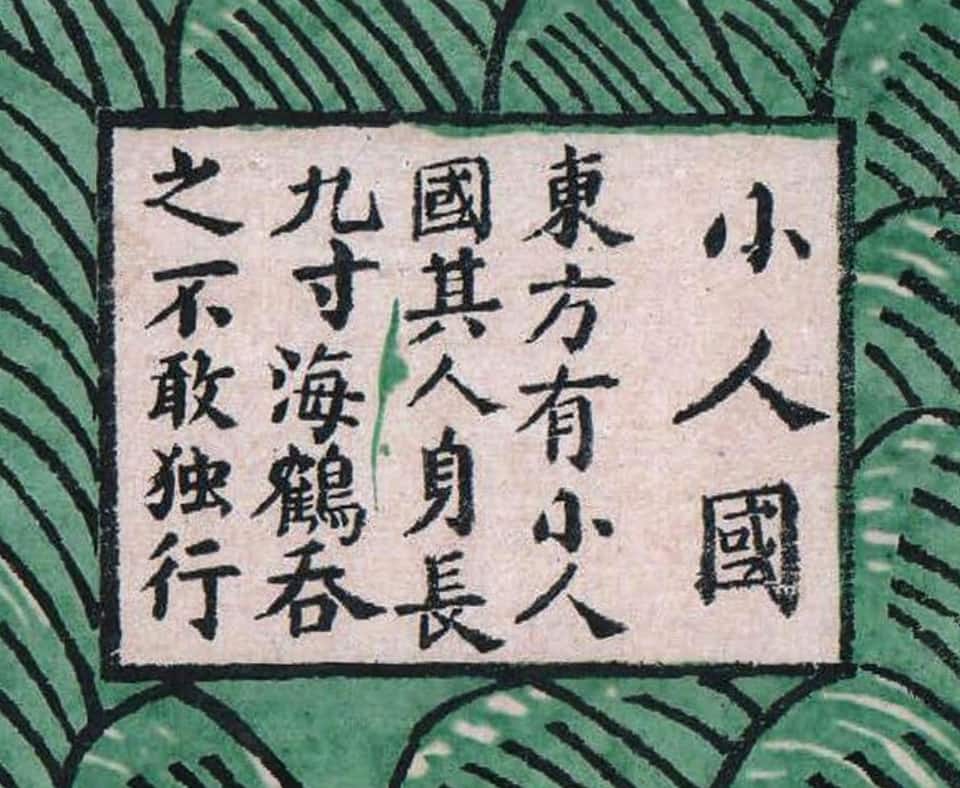 小人國
東方有小人
國其人身長
九寸海鶴吞
之不敢独行